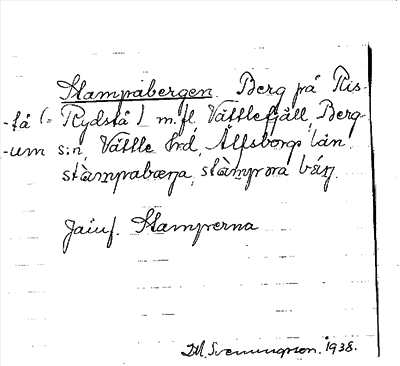 Stampabergen. Berg på Ris-
-tå (= Rydstå) m.fl. Vättlefjäll, Berg-
-um s:n, Vättle hrd, Älfsborgs län.
stàmpabæra, stàmpora bárj.
Jämf. Stamperna
Hl. Svenningson. 1938.